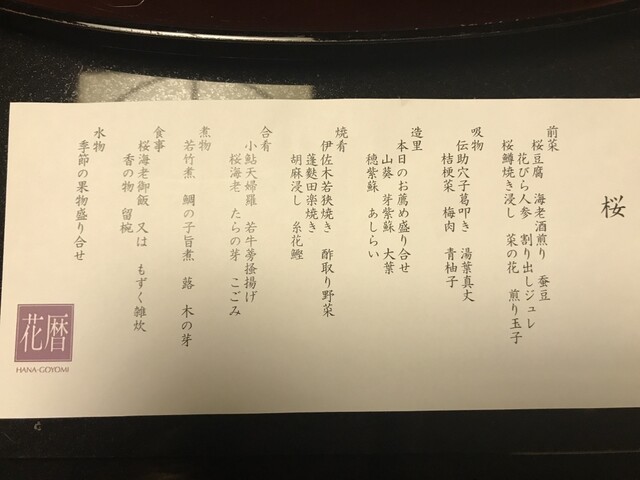 桜
前菜
桜豆腐 海老酒煎り 蚕豆
花びら人参 割り出しジュレ
桜鱒焼き浸し 菜の花 煎り玉子
吸物
伝助穴子葛叩き 湯葉真丈
桔梗菜 梅肉 青柚子
造里
本日のお薦め盛り合せ
山葵 芽紫蘇 大葉
穂紫蘇 あしらい
焼肴
伊佐木若狭焼き 酢取り野菜
蓬麩田楽焼き
胡麻浸し 糸花鰹
合肴
小鮎天婦羅 若牛蒡掻揚げ
桜海老 たらの芽 こごみ
煮物
若竹煮 鯛の子旨煮 蕗 木の芽
食事
桜海老御飯 又は もずく雑炊
香の物 留椀
水物
季節の果物盛り合せ
花暦
HANA-GOYOMI